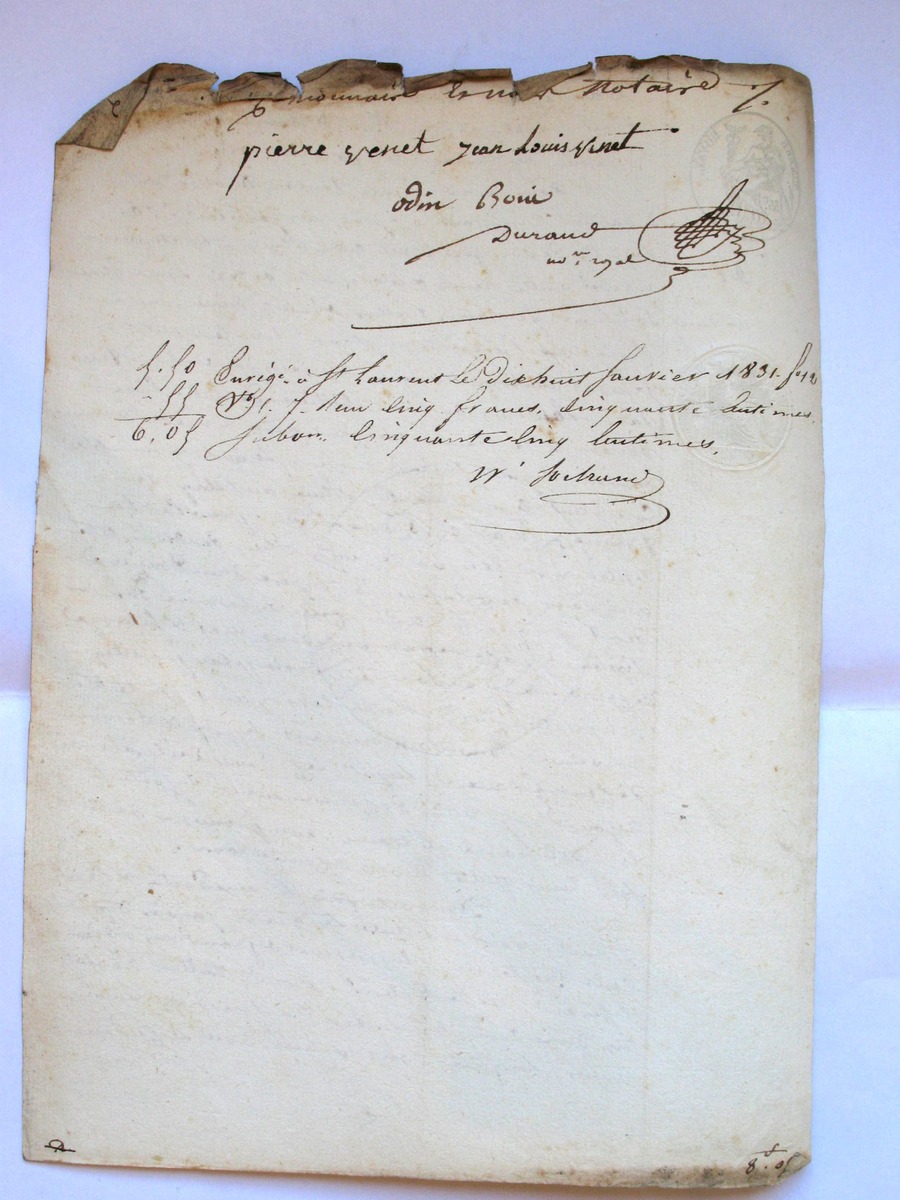 notaire
pierre venet jean Louis vinet
odin Boui
Durand
no.re royal
5.50 Enrégé. à St Laurent le dixhuit Janvier 1831. fo 12
55 Vo Reçu cinq francs, cinquante centimes.
6.05 Subon. cinquante cinq centimes.
8f.05